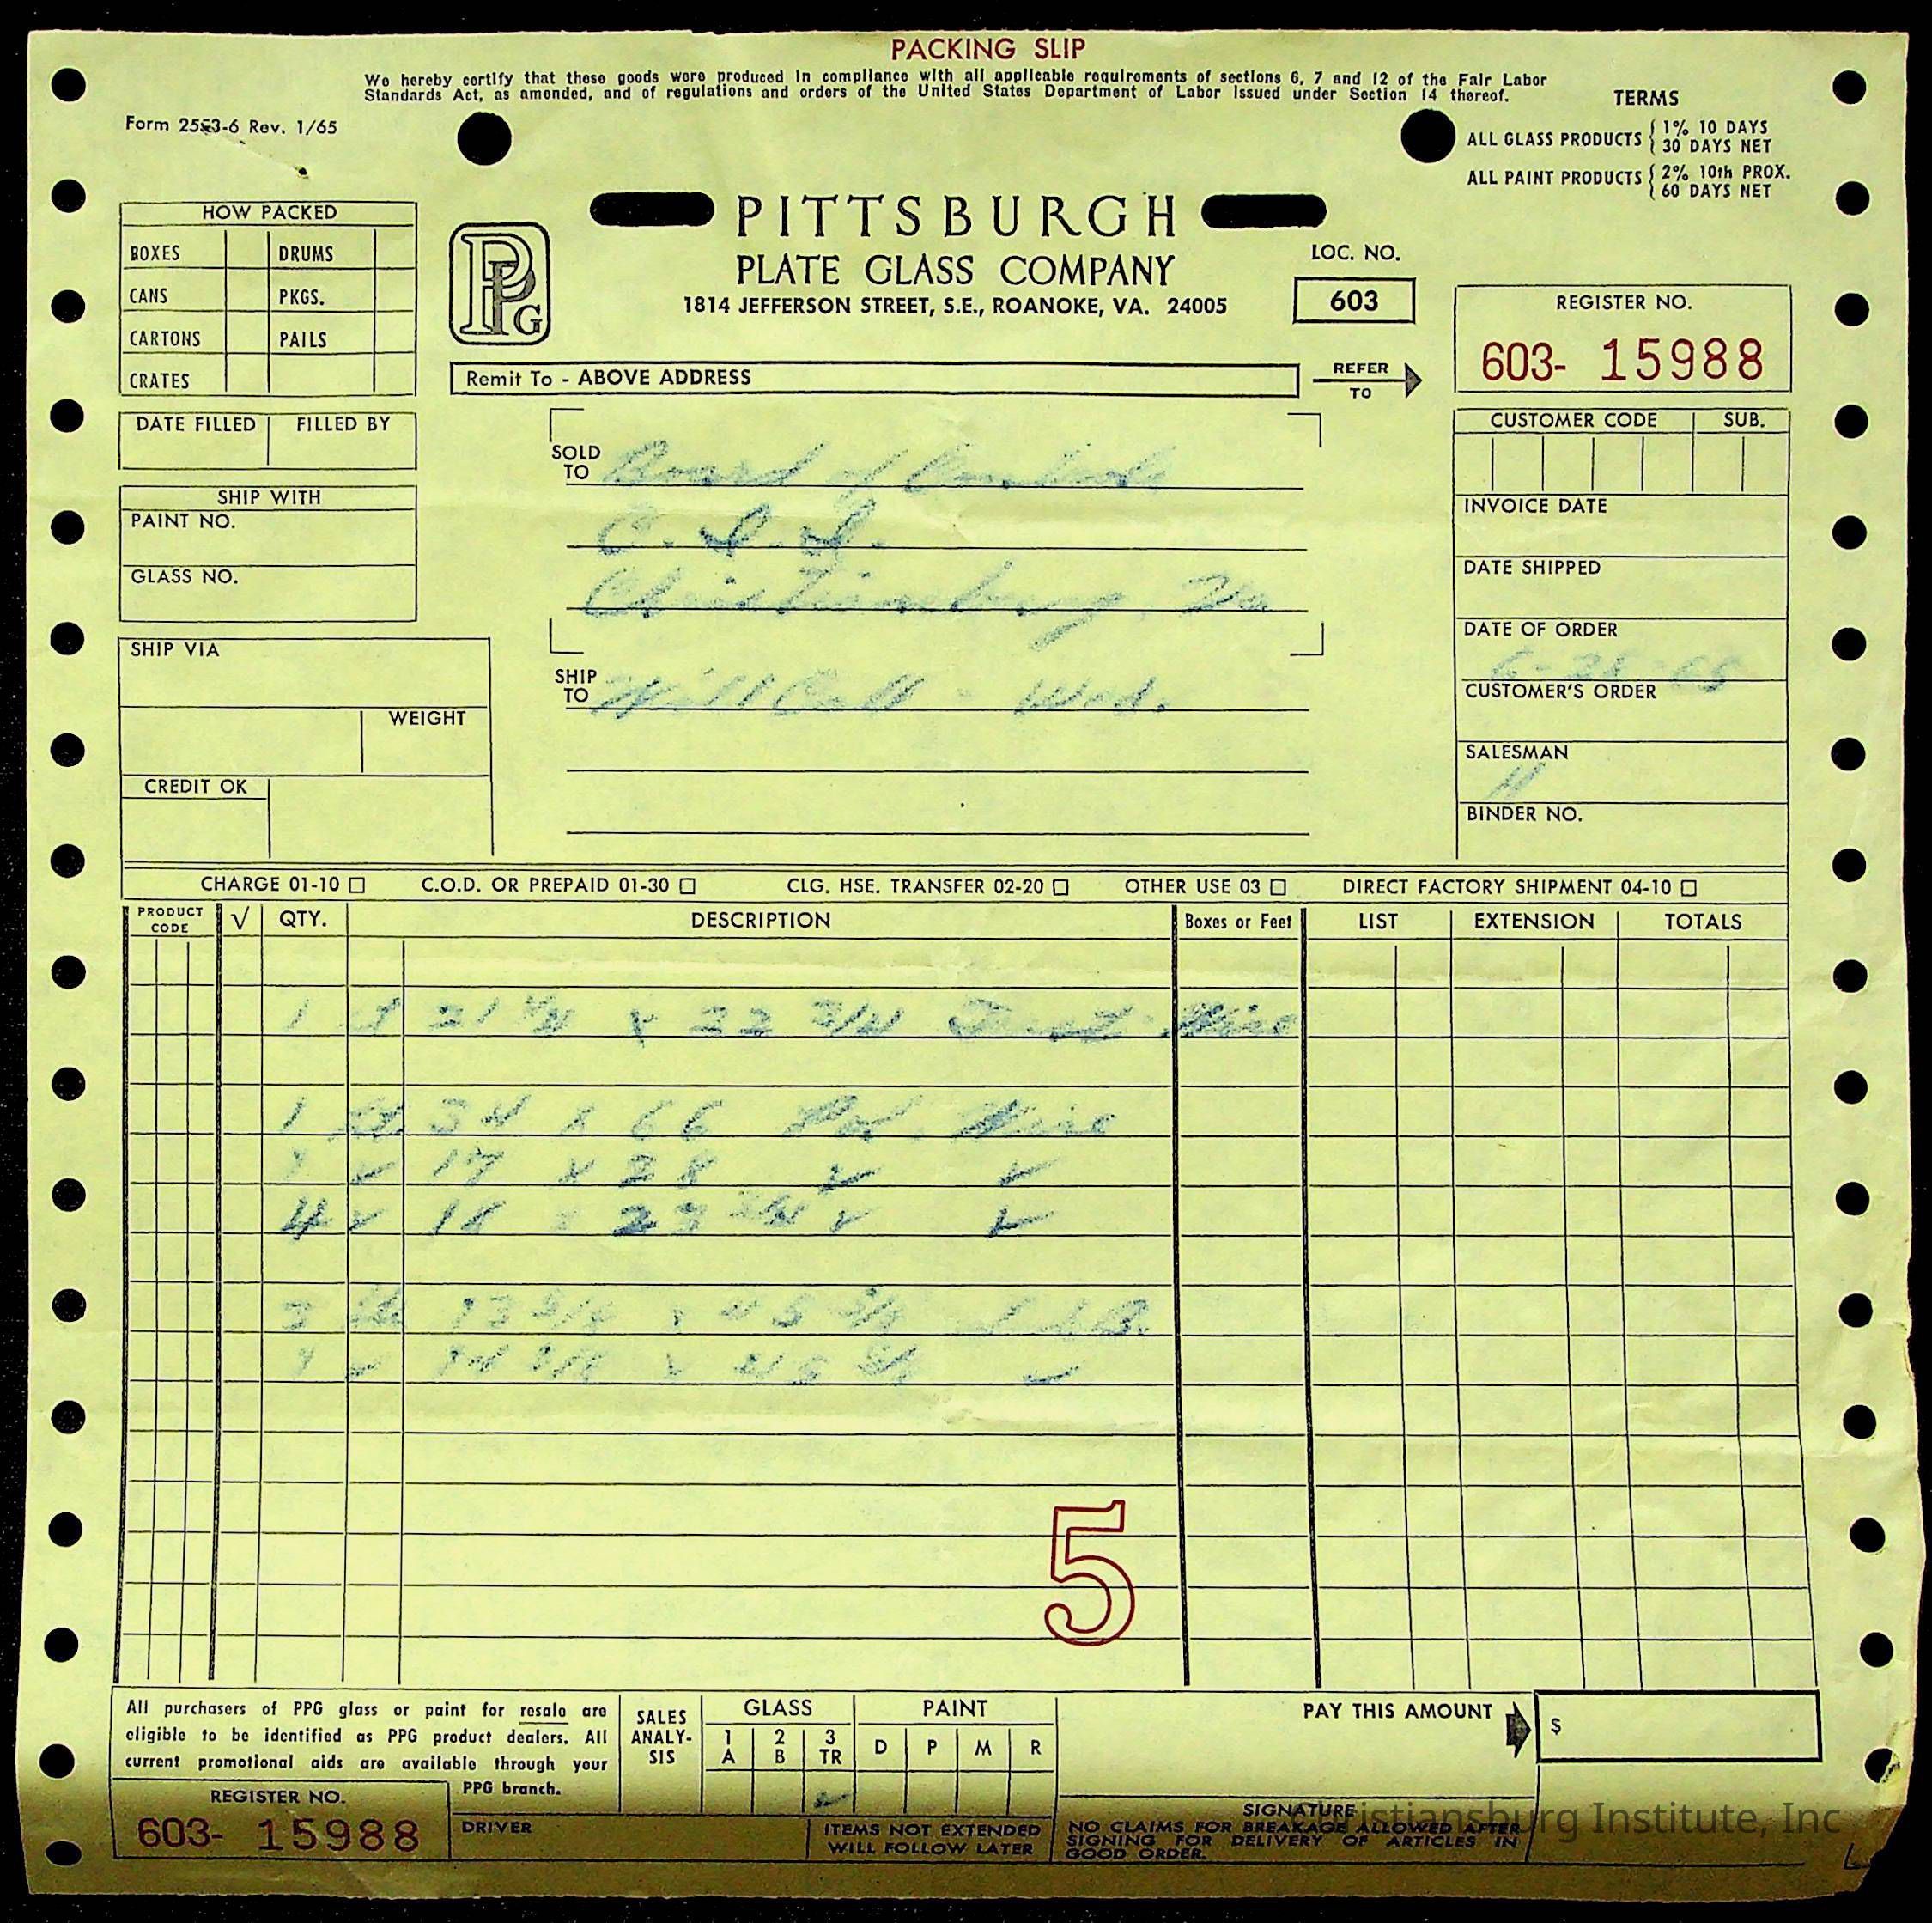 PACKING SLIP
We hereby certify that these goods were produced in compliance with all applicable requirements of sections 6, 7 and 12 of the Fair Labor
Standards Act, as amended, and of regulations and orders of the United States Department of Labor issued under Section 14 thereof.
TERMS
Form 2553-6 Rev. 1/65
ALL GLASS PRODUCTS { 1% 10 DAYS
30 DAYS NET
ALL PAINT PRODUCTS { 2% 10th PROX.
60 DAYS NET
HOW PACKED
BOXES DRUMS
CANS PKGS.
CARTONS PAILS
CRATES
PPG
PITTSBURGH
PLATE GLASS COMPANY
1814 JEFFERSON STREET, S.E., ROANOKE, VA. 24005
LOC. NO.
603
REGISTER NO.
603- 15988
Remit To - ABOVE ADDRESS
REFER
TO
DATE FILLED FILLED BY
SHIP WITH
PAINT NO.
GLASS NO.
SOLD
TO
Board of Control
C. I. I.
Christiansburg, Va
CUSTOMER CODE SUB.
INVOICE DATE
DATE SHIPPED
DATE OF ORDER
6-28-65
CUSTOMER'S ORDER
SALESMAN
H
BINDER NO.
SHIP VIA
WEIGHT
CREDIT OK
SHIP
TO
Will Call - Wed.
CHARGE 01-10 □ C.O.D. OR PREPAID 01-30 □ CLG. HSE. TRANSFER 02-20 □ OTHER USE 03 □ DIRECT FACTORY SHIPMENT 04-10 □
PRODUCT
CODE
√ QTY. DESCRIPTION Boxes or Feet LIST EXTENSION TOTALS
1 21 x 22 3/4 Wire
1 34 x 66 Pol. Wire
17 x 28 ✓ ✓
4 ✓ 18 23 ✓ ✓
B.
5
All purchasers of PPG glass or paint for resale are
eligible to be identified as PPG product dealers. All
current promotional aids are available through your
PPG branch.
SALES
ANALY-
SIS
GLASS
1 2 3
A B TR
✓
PAINT
D P M R
PAY THIS AMOUNT
$
REGISTER NO.
603- 15988
DRIVER
ITEMS NOT EXTENDED
WILL FOLLOW LATER
SIGNATURE
NO CLAIMS FOR BREAKAGE ALLOWED AFTER
SIGNING FOR DELIVERY OF ARTICLES IN
GOOD ORDER.
Christiansburg Institute, Inc